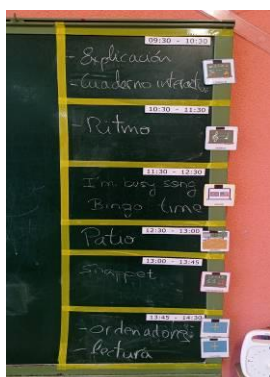 09:30 - 10:30
- Explicación
- Cuaderno
10:30 - 11:30
- Ritmo
11:30 - 12:30
I'm busy song
Bingo time
12:30 - 13:00
Patio
13:00 - 13:45
13:45 - 14:30
- ordenadores
- lectura